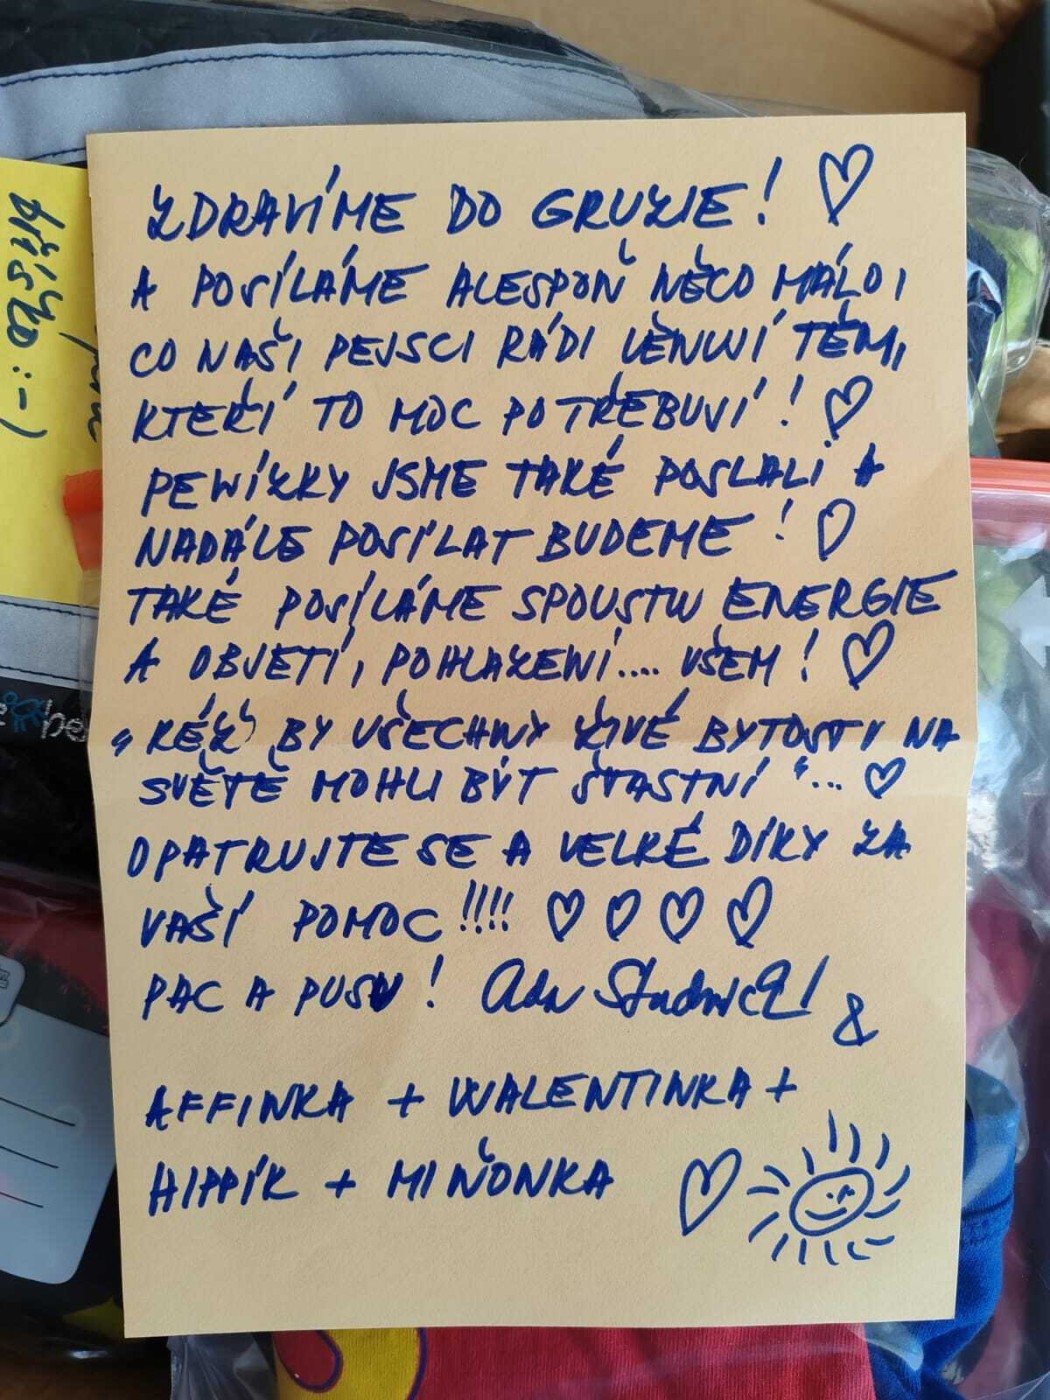 ZDRAVÍME DO GRUZIE! ♡
A POSÍLÁME ALESPOŇ NĚCO MÁLO,
CO NAŠI PEJSCI RÁDI VĚNUJÍ TĚM,
KTEŘÍ TO MOC POTŘEBUJÍ! ♡
PENÍZKY JSME TAKÉ POSLALI A
NADÁLE POSÍLAT BUDEME! ♡
TAKÉ POSÍLÁME SPOUSTU ENERGIE
A OBJETÍ, POHLAZENÍ.... VŠEM! ♡
"KÉŽ BY VŠECHNY ŽIVÉ BYTOSTI NA
SVĚTĚ MOHLI BÝT ŠŤASTNÍ"... ♡
OPATRUJTE SE A VELKÉ DÍKY ZA
VAŠÍ POMOC!!!! ♡ ♡ ♡ ♡
PAC A PUSU! &
AFFINKA + WALENTINKA +
HIPPÍK + MIŇONKA ♡